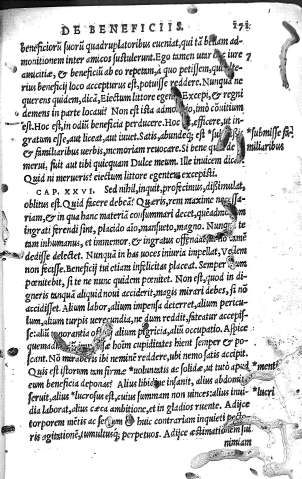 DE BENEFICIIS. 171
beneficiorũ suorũ quadruplatoribus eueniat, qui tã benam ad-
monitionem inter amicos sustulerunt. Ego tamen utar iure
amicitiæ, & beneficiũ ab eo repetam, à quo petissem,
rius beneficij loco accepturus est, potuisse reddere. Nunquã ne
querens quidem, dicã, Eiectum littore egentem Excepi, & regni
demens in parte locaui? Non est ista admonitio, imò cõuitium
est. Hoc est, in odiũ beneficia perducere. Hoc efficere, ut in-
gratum esse, aut liceat, aut iuuet. Satis, abundeq́; est *submissis *submisse fa-
& familiaribus uerbis, memoriam reuocare. Si bene quid de miliaribus
merui, fuit aut tibi quicquam Dulce meum. Ille inuicem dicat
Quid ni merueris? eiectum littore egentem excepisti.
CAP. XXVI. Sed nihil, inquit, profecimus, dissimulat,
oblitus est. Quid facere debeã? Quæris, rem maxime
riam, & in qua hanc materiã consummari decet, quẽadmodum
ingrati ferendi sint, placido aĩo, mansueto, magno. Nunquã te
tam inhumanus, et immemor, & ingratus offendat,
dedisse delectet. Nunquã in has uoces iniuria impellat, Vellem
non fecisse. Beneficij tui etiam infelicitas placeat. Semper
pœnitebit, si te ne nunc quidem pœnitet. Non est, quod in di-
gneris tanquã aliquid noui acciderit, magis mirari debes, si nõ
accidisset. Alium labor, alium impensa deterret, alium pericu-
lum, alium turpis uerecundia, ne dum reddit, fateatur accepis-
se: aliũ ignorantia officij, alium pigricia, aliũ occupatio. Aspice
quemadmodum hoĩm cupiditates hient semper & po-
scant. Nõ miraberis ibi neminẽ reddere, ubi nemo satis accipit.
Quis est istorum tam firmæ *uoluntatis ac solidæ, ut tutò apud *ment
eum beneficia deponas? Alius libidine insanit, alius abdomini
seruit, alius *lucrosus est, cuius summam non uincas: alius inui- *lucri
dia laborat, alius cæca ambitione, et in gladios ruente. Adijce
torporem mẽtis ac senium & huic contrariam inquieti pecto-
ris agitationẽ, tumultusq́; perpetuos. Adijce æstimationem sui
nimiam